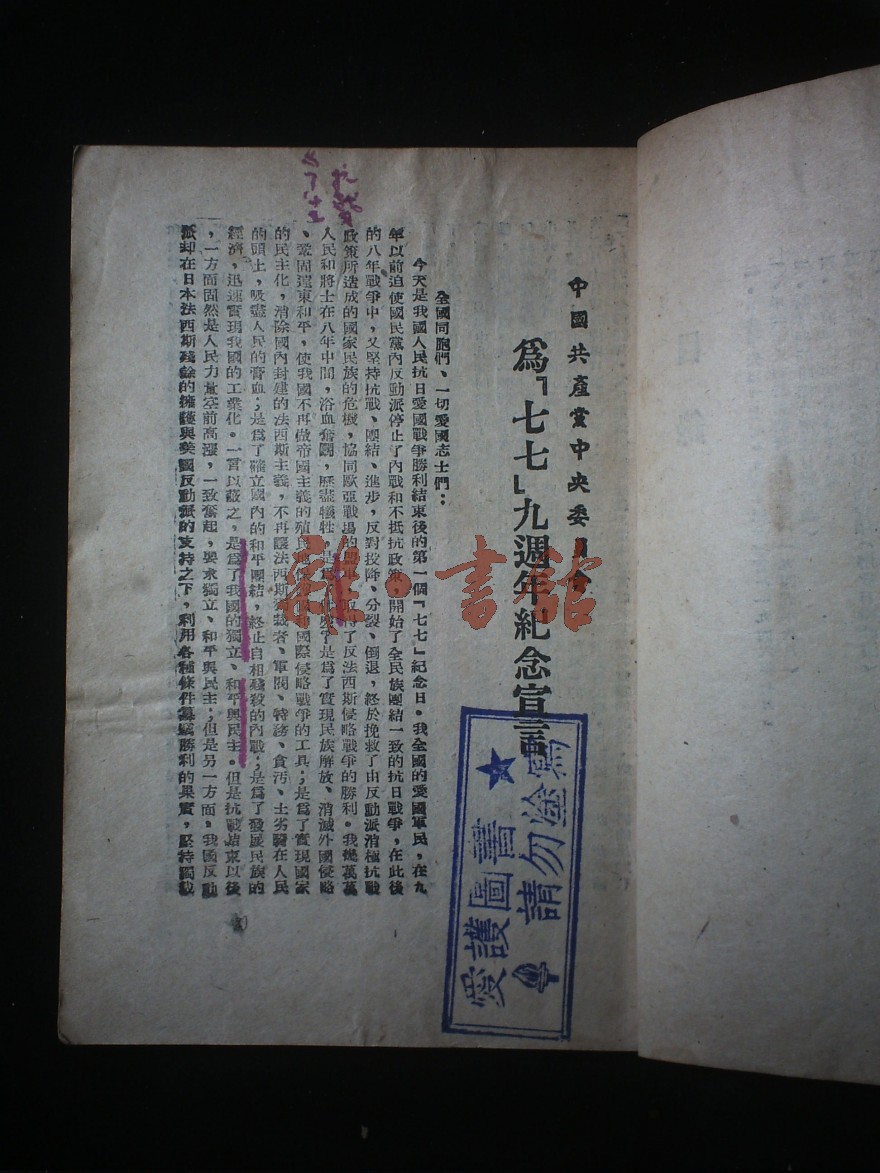 中國共產黨中央委員會
爲「七七」九週年紀念宣言
全國同胞們、一切愛國志士們：
今天是我國人民抗日愛國戰爭勝利結束後的第一個「七七」紀念日。我全國的愛國軍民，在九
年以前迫使國民黨內反動派停止了內戰和不抵抗政策，開始了全民族團結一致的抗日戰爭，在此後
的八年戰爭中，又堅持抗戰、團結、進步，反對投降、分裂、倒退，終於挽救了由反動派消極抗戰
政策所造成的國家民族的危機，協同歐亞戰場的盟軍，取得了反法西斯侵略戰爭的勝利。我幾萬萬
人民和將士在八年中間，浴血奮鬭，歷盡犧牲，是爲了什麼？是爲了實現民族解放、消滅外國侵略
、鞏固遠東和平，使我國不再做帝國主義的殖民地保國際侵略戰爭的工具；是爲了實現國家
的民主化，消除國內封建的法西斯主義，不再讓法西斯獨裁者、軍閥、特務、貪污、土劣騎在人民
的頭上，吸盡人民的膏血；是爲了確立國內的和平團結，終止自相殘殺的內戰；是爲了發展民族的
經濟，迅速實現我國的工業化。一言以蔽之，是爲了我國的獨立、和平與民主。但是抗戰結束以後
，一方面固然是人民力量空前高漲，一致奮起，要求獨立、和平與民主；但是另一方面，我國反動
派却在日本法西斯殘餘的擁護與美國反動派的支持之下，利用各種條件篡竊勝利的果實，堅持獨裁
抗戰
爲了什
雜·書館
愛護圖書★
請勿塗寫